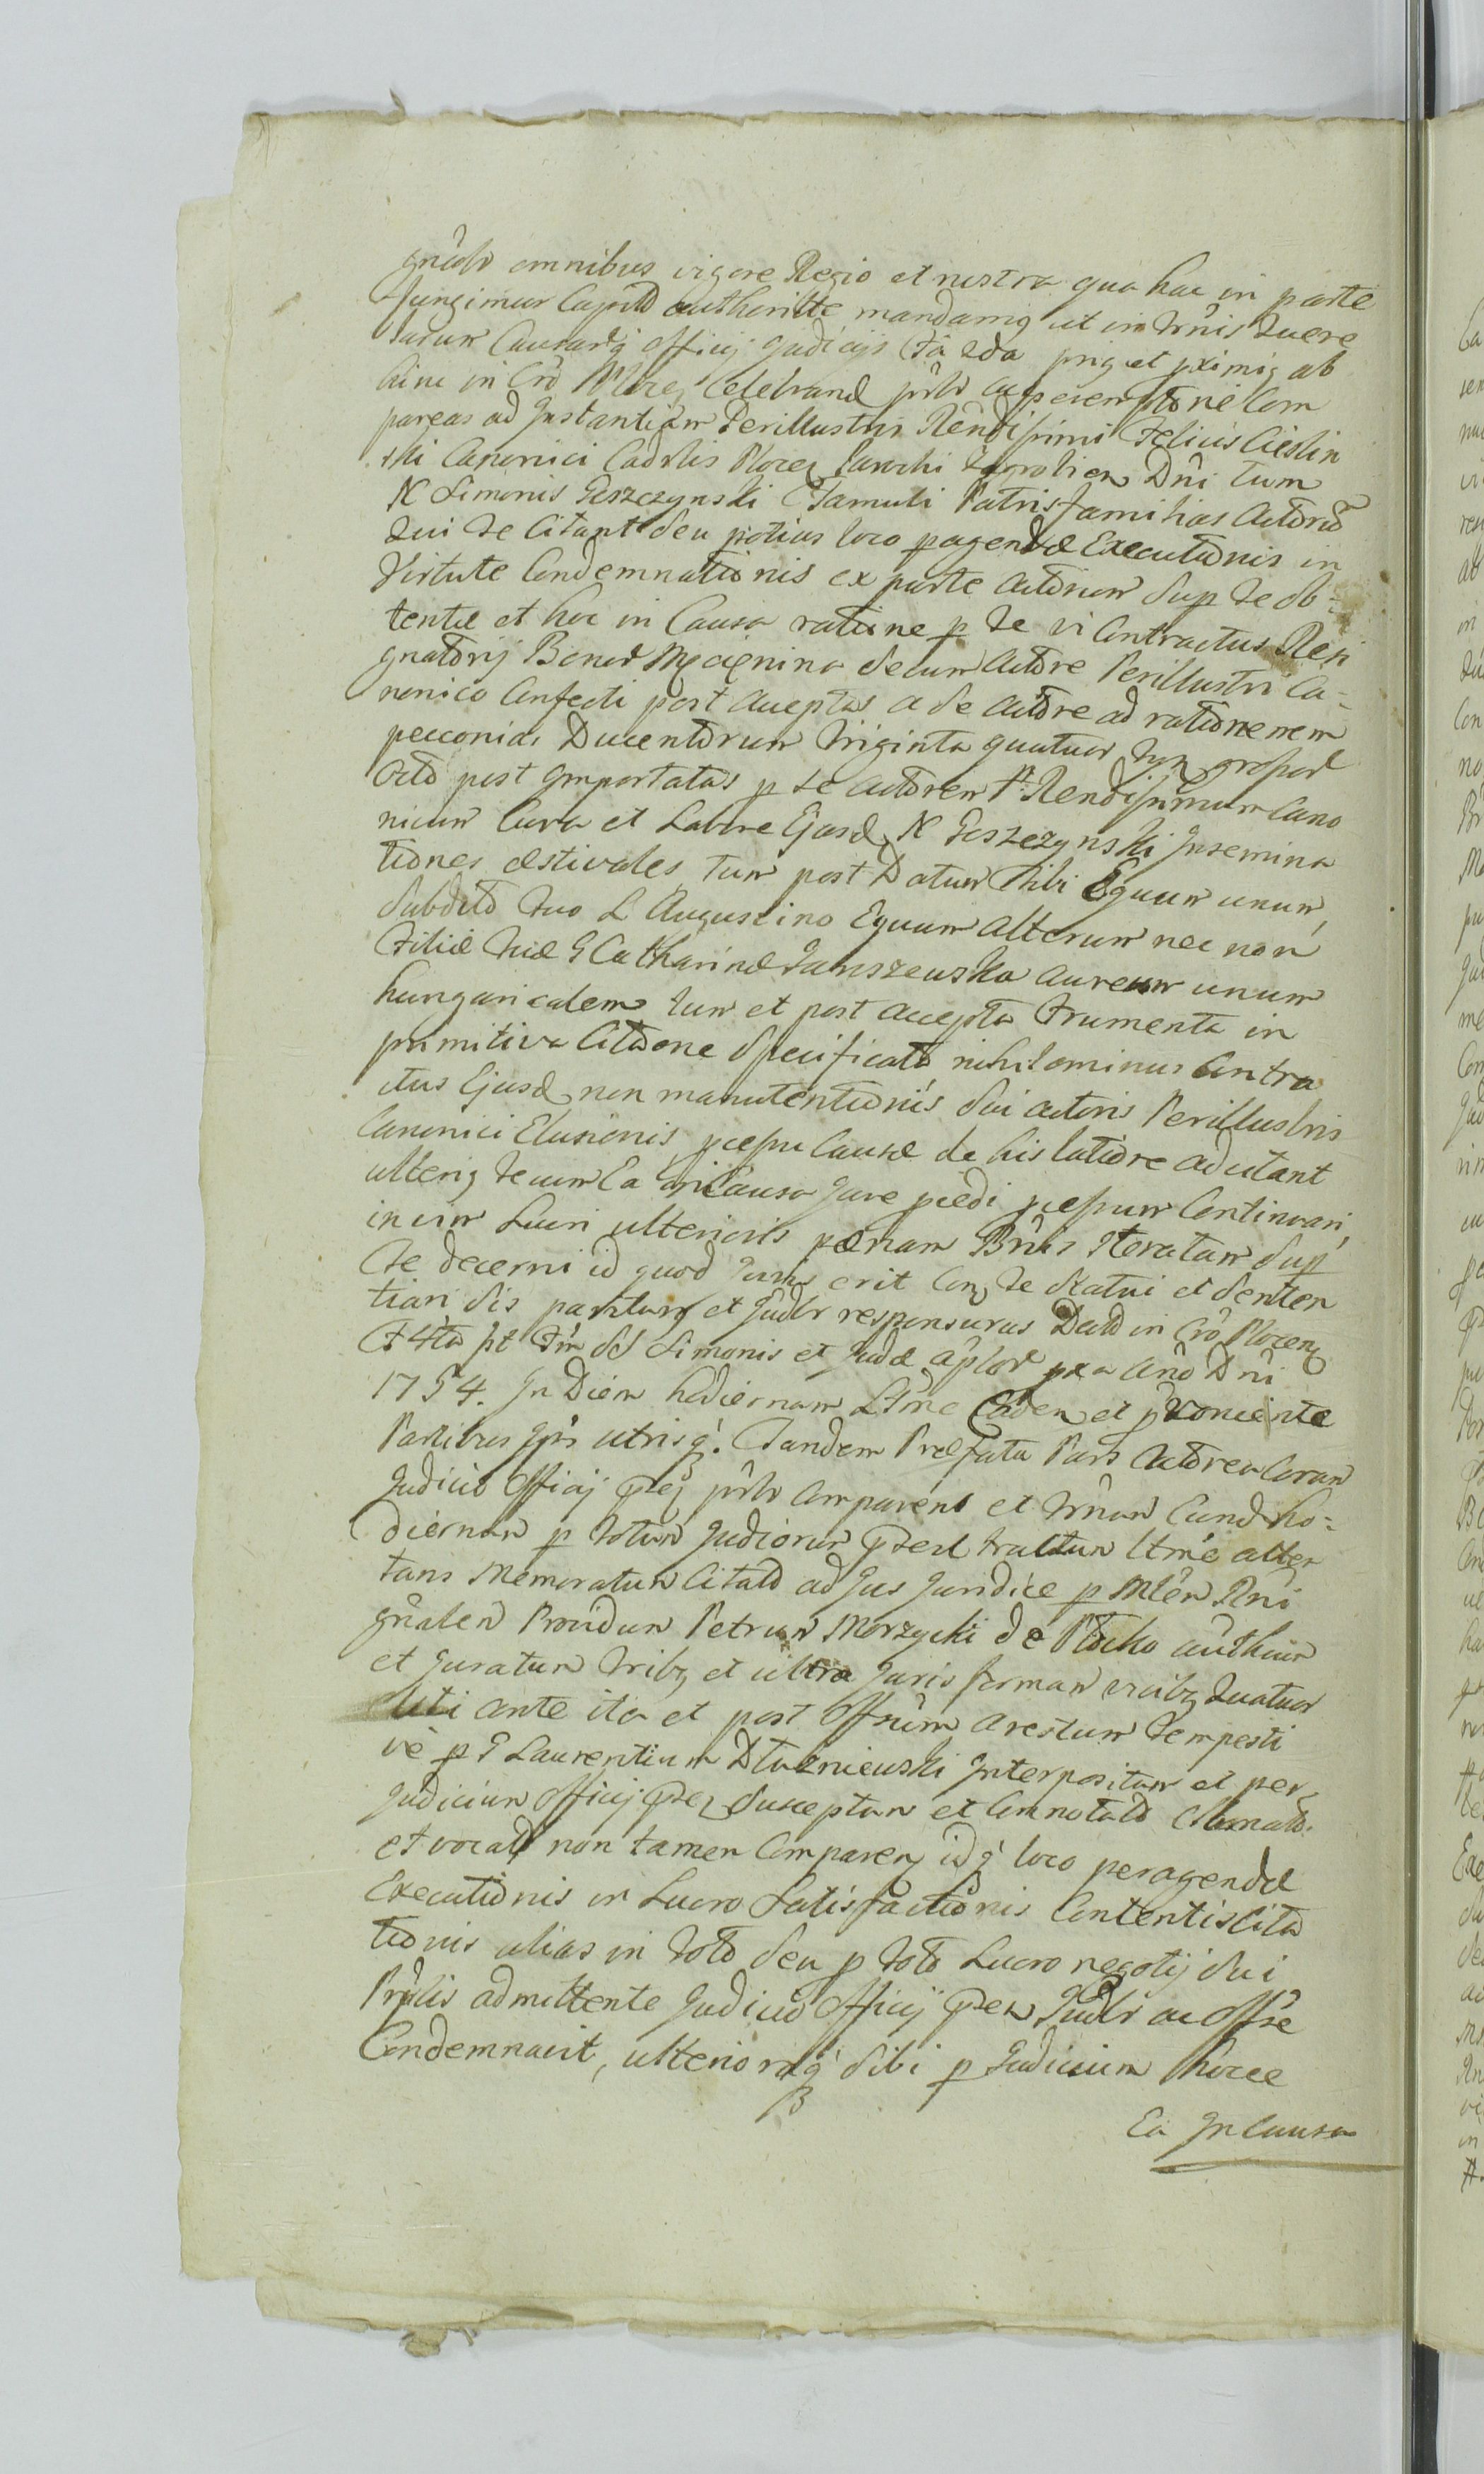 gnûlr omnibus vigore Regio et nostra qua hac in parte
fungimur Capitli authoritte mandamq ut in trmis Quere
larum Causarq officij Judicijs Fa 2da prig et pximiq ab
hinc in Cro Plocen Celebrand prlr ac peremptorie Com
pareas ad Instantiam Perillustris Rendissimi Felicis Cieslin
ski Canonici Cadrlis Plocen Parochi Dni Tum
N Simonis Goszczynski Famuli Patrisfamilias Actoru
Qui te Citant seu potius loco pagendæ Executionis in
Virtute Condemnationis ex parte Actorum Sup te ob-
tentæ et hoc in Causa ratione p te vi Contractus Resi
gnatorij Bonor Mecienina secum Actore Perillustri Ca-
nonico Confecti post Acceptas a se actore ad rationem
pecconias Ducentorum triginta quatuor tyn grossor
octo post Importatas p te actorem P. Rendissimum Cano
nicum Cura et Labore Ejusd N Goszczynski Insemina
tiones æstivales, Tum post Datum tibi Equum unum,
Subdito tuo L Augustino Equum alterum nec non
Filiæ tuæ G Catharinæ Januszewska aureum unum
hungaricalem tum et post accepta Frumenta in
primitiva Citaone Specificata nihilominus Contra
ctus Ejusd non manutentionis Sui actoris Perillustris
Canonici Elusionis pcessu Causæ de his latiore adcitant
ulteriq tecum Ea in Causa Jure pcedi pcessum Continuari,
in vim Lucri ulterioris pœnam Bnis Iteratam Sup
te decerni id quod Juris erit Con te statui et senten
tiari sis pariturq et Judlr responsurus Datd in Cro Plocen
F 4ta pt Fm SS Simonis et Judæ Aplor pxa Ano Dni
1754. In Diem hodiernam Ltme Caden et pveniente
Partibus Ips utrisq. Tandem Præfata Pars Actorea Coram
Judicio Officij pseq prlr Comparens et trmum Eund ho-
diernum p totum Judiciorum psed tractum ltme atten
tans Memoratum Citatd ad Jus Juridice p Mlem Rni
gnalem Providum Petrum Morzycki de Plocko authum
et Juratum tribq et ultra Juris formam vicibq Quatuor
Uti ante ita et post Offsum arestum tempesti
ve p G Laurentium Dluzniewski Interpositum et per
Judicium Officij psen Susceptum et Connotatd Clamatd.
et vocatd non tamen Comparen idq loco peragendæ
Executionis in Lucro Satisfactionis Contentis Cita
tionis alias in toto seu p toto Lucro negotij sui
Prlis admittente Judicio Officij psen Judlr ac offse
Condemnavit, ulteriorq sibi p Judicium hocce
Ea In Causa